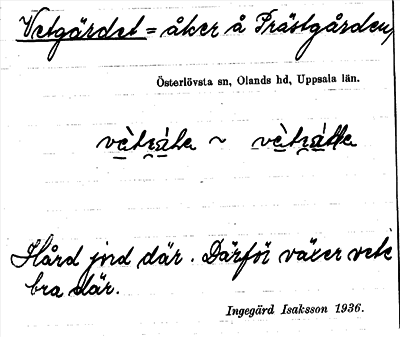 Vetgärdet = åker å Prästgården,
Österlövsta sn, Olands hd, Uppsala län.
Hård jord där. Därför växer vete
bra där.
Ingegärd Isaksson 1936.